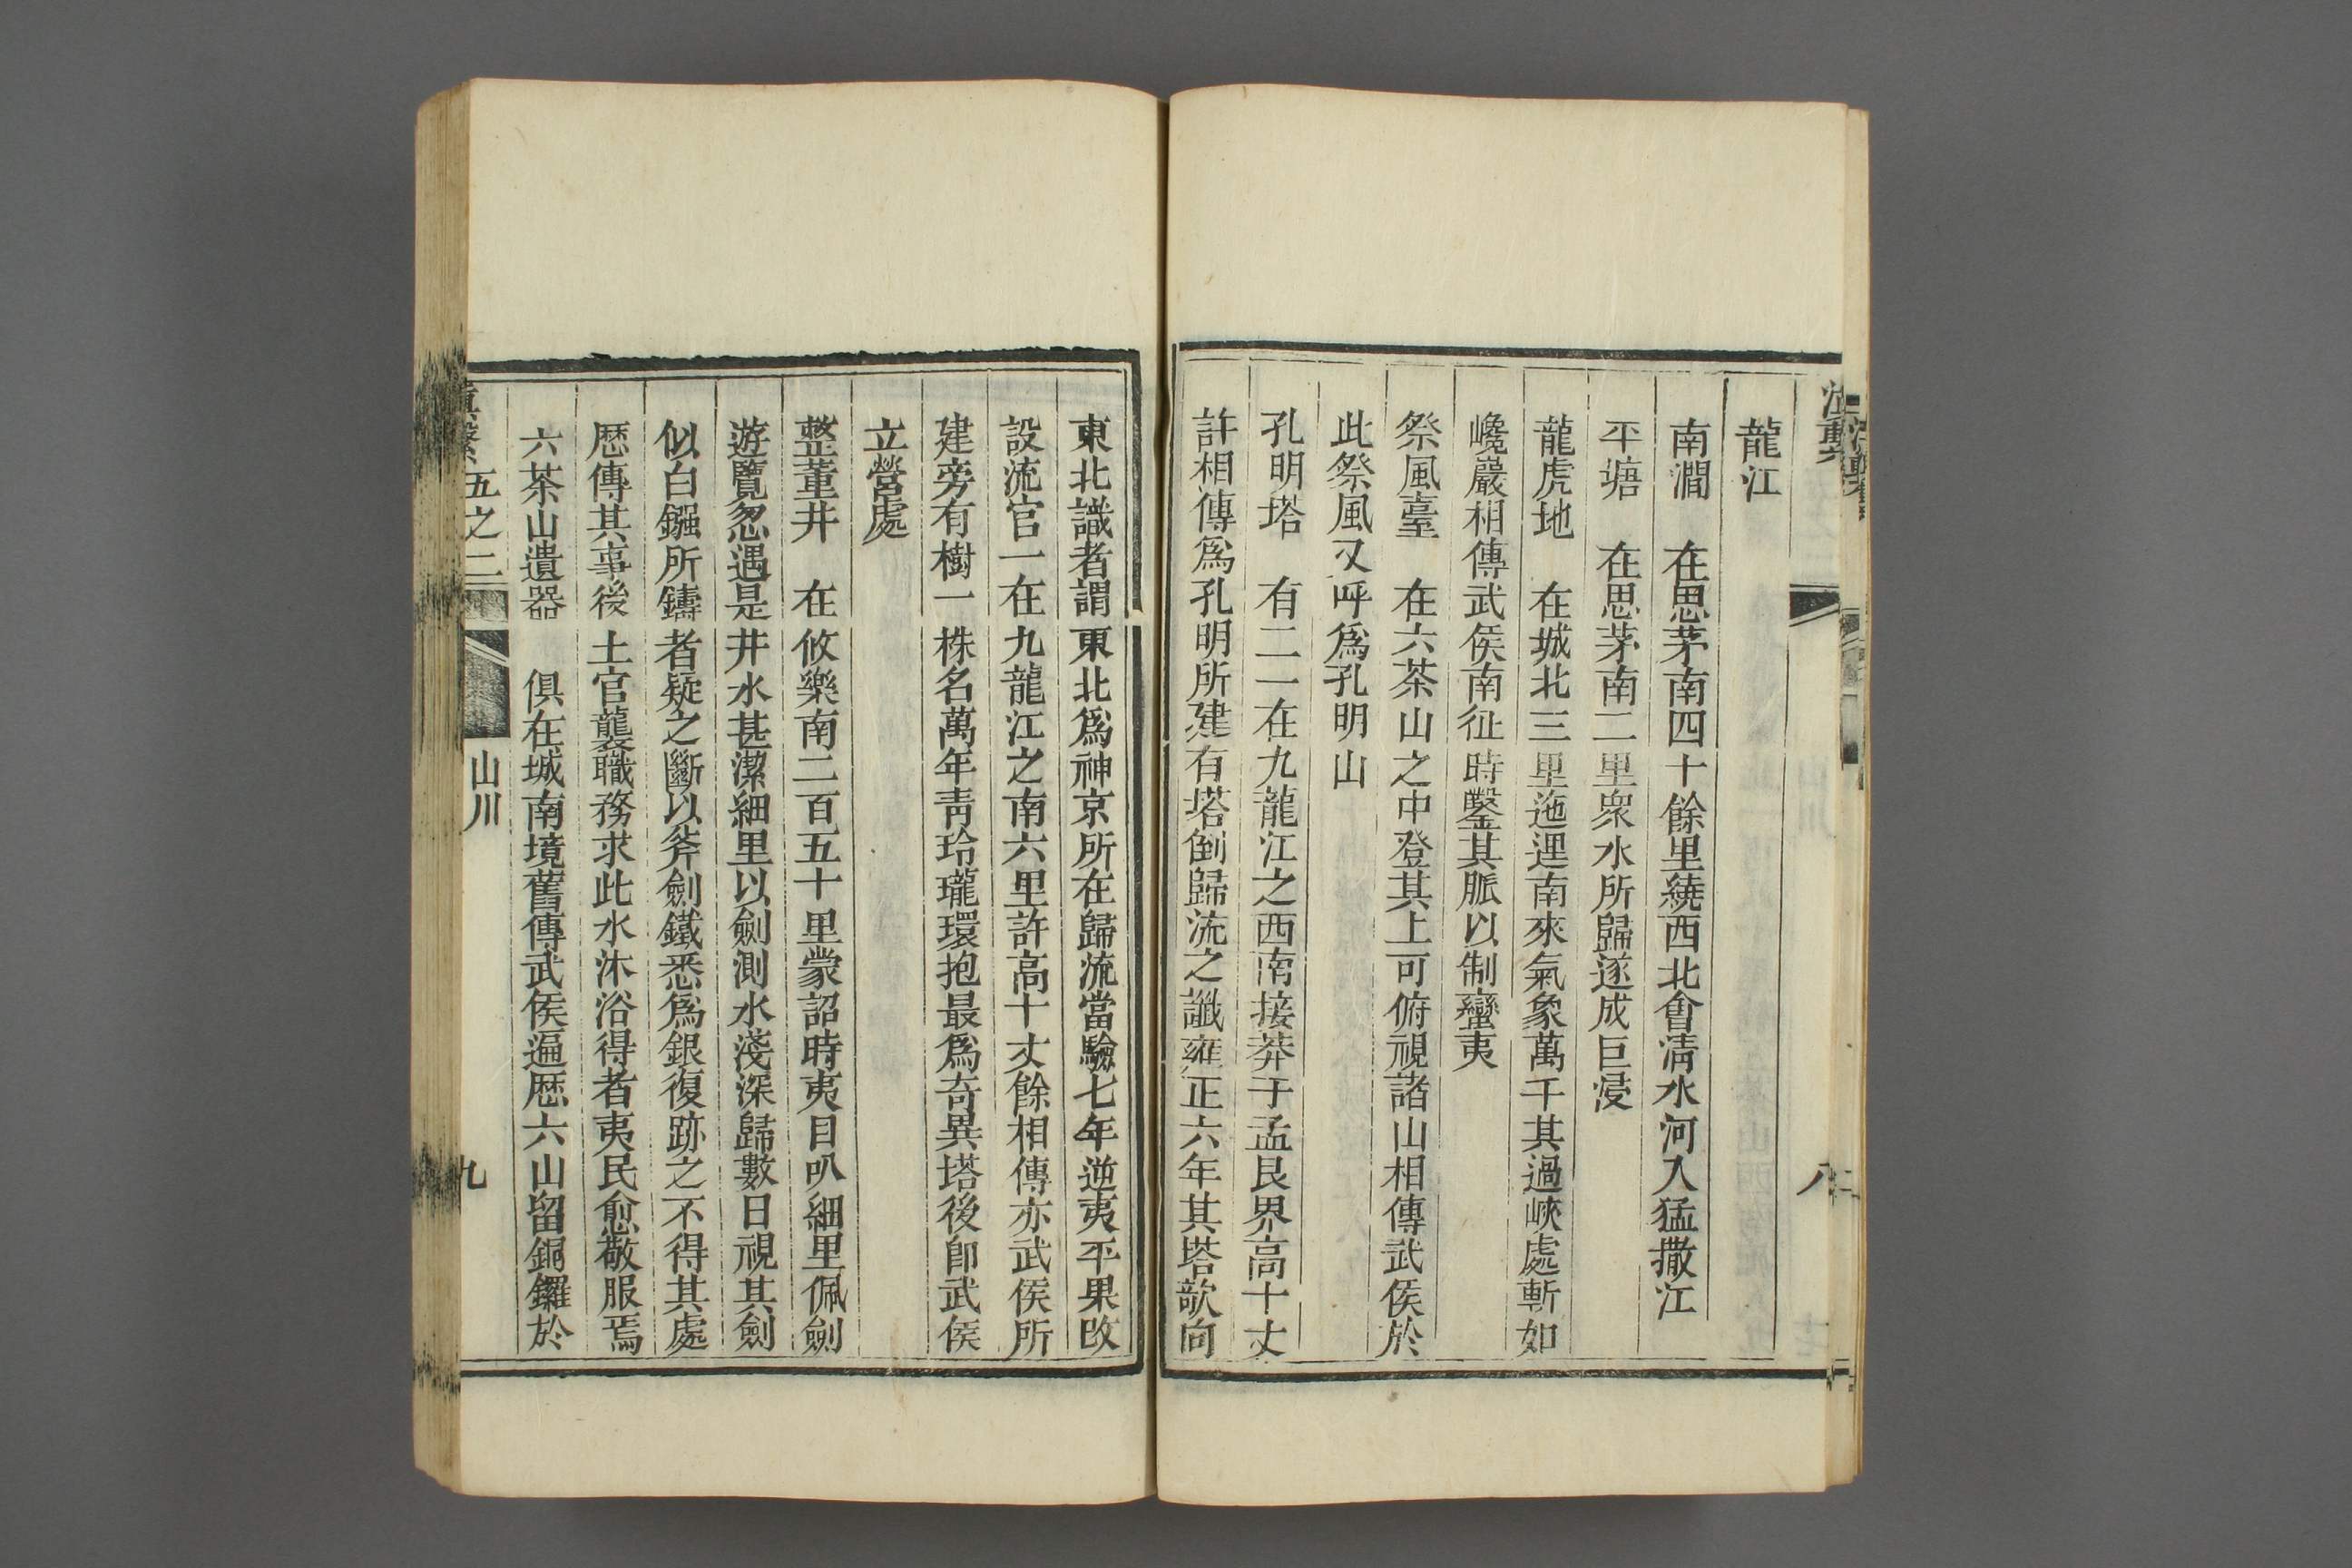 龍江
南澗　在思茅南四十餘里繞西北會清水河入猛撒江
平塘　在思茅南二里衆水所歸遂成巨浸
龍虎地　在城北三里迤邐南來氣象萬千其過峽處斬如
巉巖相傳武侯南征時鑿其脈以制蠻夷
祭風臺　在六茶山之中登其上可俯視諸山相傳武侯於
此祭風又呼爲孔明山
孔明塔　有二一在九龍江之西南接莽于孟艮界高十丈
許相傳爲孔明所建有塔倒歸流之讖雍正六年其塔欹向
八
東北識者謂東北爲神京所在歸流當驗七年逆夷平果改
設流官一在九龍江之南六里許高十丈餘相傳亦武侯所
建旁有樹一株名萬年靑玲瓏環抱最爲奇異塔後卽武侯
立營處
整董井　在攸樂南二百五十里蒙詔時夷目叭細里佩劍
遊覽忽遇是井水甚潔細里以劍測水淺深歸數日視其劍
似白鏹所鑄者疑之斷以斧劍鐵悉爲銀復跡之不得其處
歷傳其事後土官襲職務求此水沐浴得者夷民愈敬服焉
六茶山遺器　俱在城南境舊傳武侯遍歷六山留銅鑼於
滇繫 五之二　山川　九